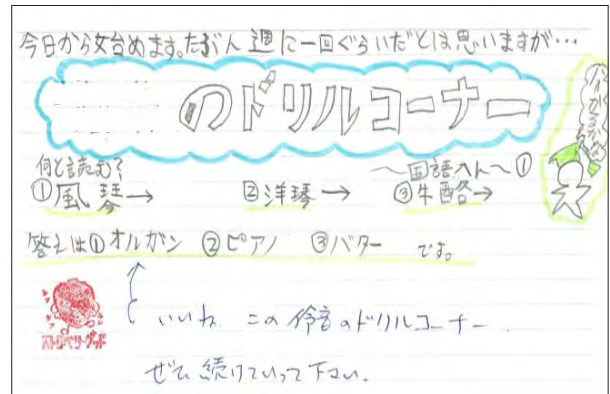 今日から始めます。たぶん週に一回ぐらいだとは思いますが…
のドリルコーナー
何と読む?
～国語入ん～①
①風琴→ ②洋琴→ ③牛酪→
答えは①オルガン ②ピアノ ③バター です。
いいね この 鈴音のドリルコーナー.
ぜひ 続けていって下さい.